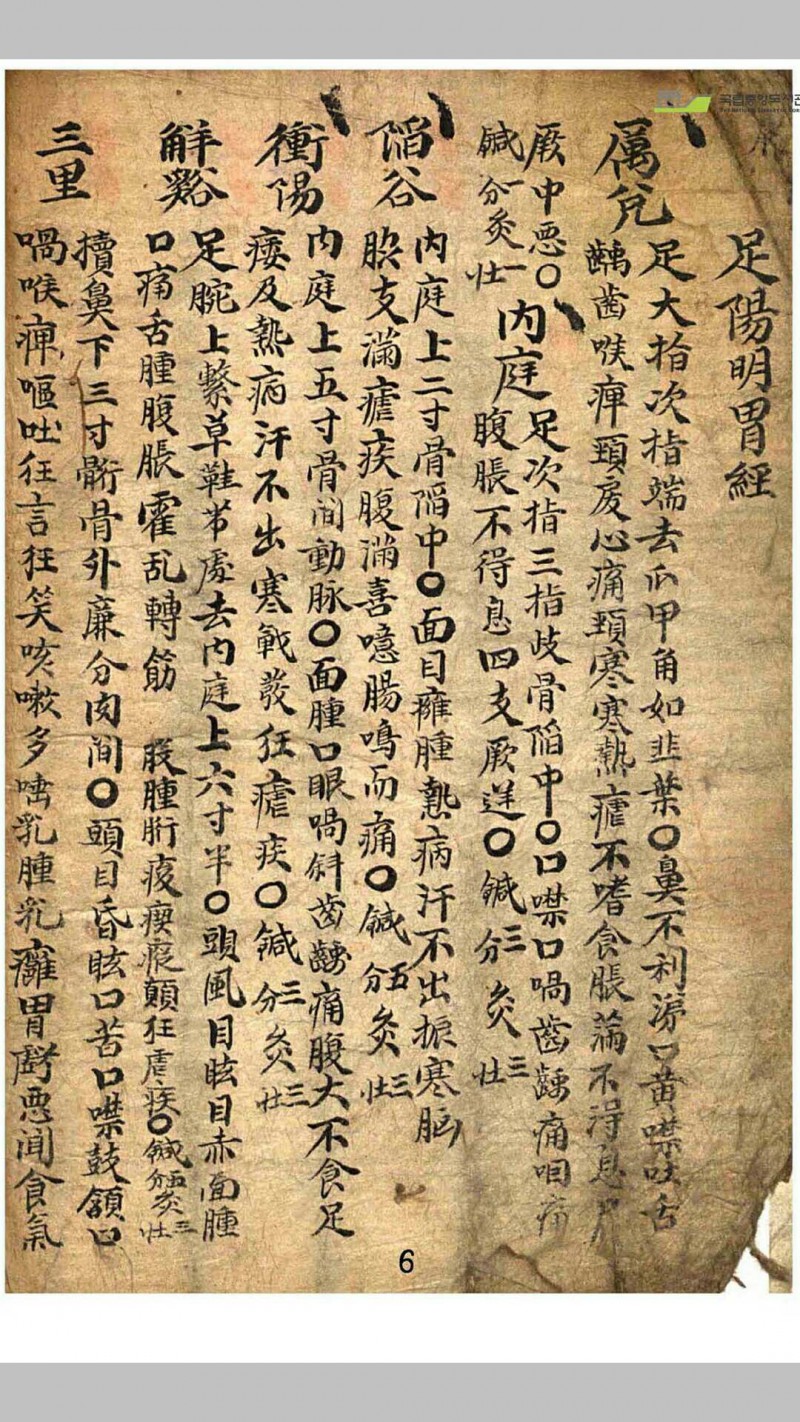 足陽明胃經
厲兌
足大指次指端去爪甲角如韭葉〇鼻不利涕口黃噤吐舌
齲齒喉痺頸㾱心痛頸寒寒熱瘧不嗜食脹滿不得息尸
厥中悪〇鍼一分灸一壯
內庭
足次指三指歧骨陷中〇口噤口喎齒齲痛咽痛
腹脹不得息四支厥逆〇鍼三分灸三壯
陷谷
內庭上二寸骨陷中〇面目癰腫熱病汗不出振寒脳
脇支滿瘧疾腹滿喜噫腸鳴而痛〇鍼五分灸三壯
衝陽
內庭上五寸骨间動脉〇面腫口眼喎斜齒齲痛腹大不食足
痿及熱病汗不出寒戰發狂瘧疾〇鍼三分灸三壯
解谿
足腕上繫草鞋帶處去內庭上六寸半〇頭風目眩目赤面腫
口痛舌腫腹脹霍乱轉筋 股腫胻痠瘈瘲顛狂瘧疾〇鍼五分灸三壯
三里
犢鼻下三寸䯒骨外廉分肉间〇頭目昏眩口苦口噤鼓頷口
喎喉痺嘔吐狂言狂笑咳嗽多唾乳腫乳癰胃膨悪闻食氣
6